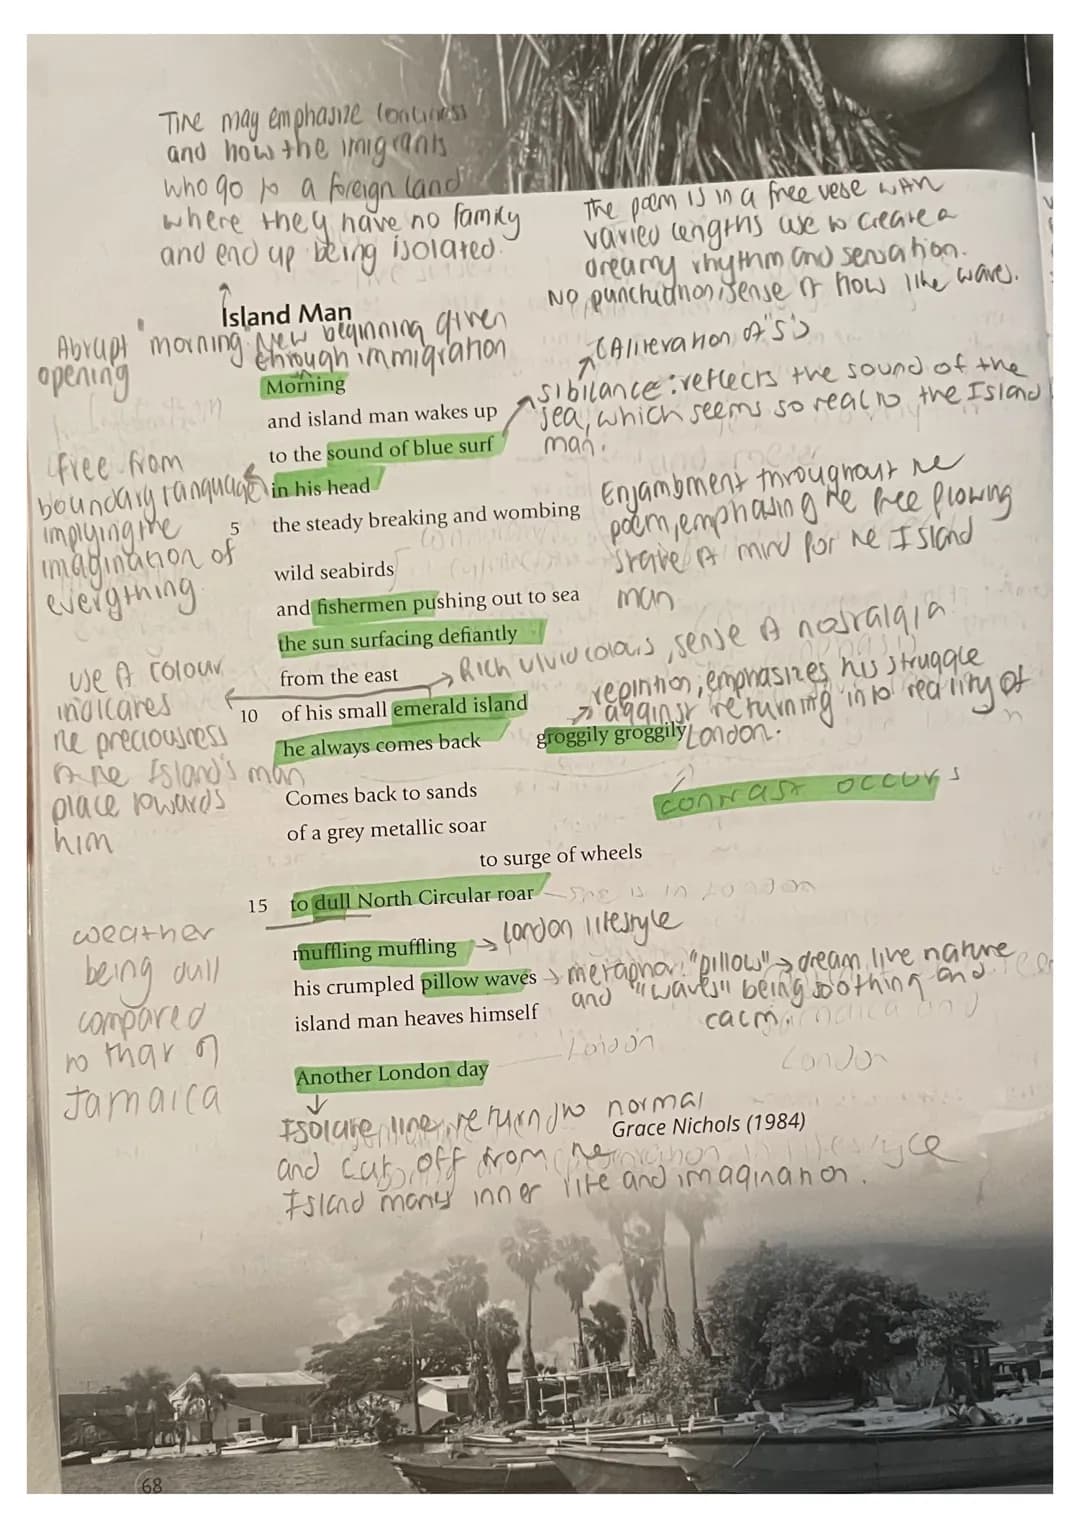 Tire may emphasize lonliness
and how the imigrants
who go to a foreign land
where they have no family
and end up being isolated.
The poem is in a free vese with
varied lengths use to create a
dreamy rhythm and sensation.
No punctuation, sense of flow like waves.
Island Man
Abrupt "morning"
opening
New beginning given
through immigration
(Aliteration of "S")
sibilance: reflects the sound of the
sea, which seems so real to the Island
man.
Morning
and island man wakes up
to the sound of blue surf
in his head
5 the steady breaking and wombing
Free from
boundary language
implying the
imagination of
everything
Enjambment throughout the
poem, emphasing the free flowing
state of mind for the Island
man
wild seabirds
and fishermen pushing out to sea
the sun surfacing defiantly
from the east
10 of his small emerald island
he always comes back groggily groggily
Rich vivid colours, sense of nostalgia
repintion, emphasizes his struggle
agginst returning into reality of
London.
use of colour
indicates
the preciousness
of the Island's man
place towards
him
contrast occurs
Comes back to sands
of a grey metallic soar
to surge of wheels
15 to dull North Circular roar
she is in London
muffling muffling
London lifestyle
his crumpled pillow waves
island man heaves himself
metaphor: "pillow" → dream like nature
and "waves" being soothing and
calm.
weather
being dull
compared
to that of
Jamaica
Another London day
London
London
Isolate line, return to normal
Grace Nichols (1984)
and cut off from the
Island mans inner life and imagination.
68